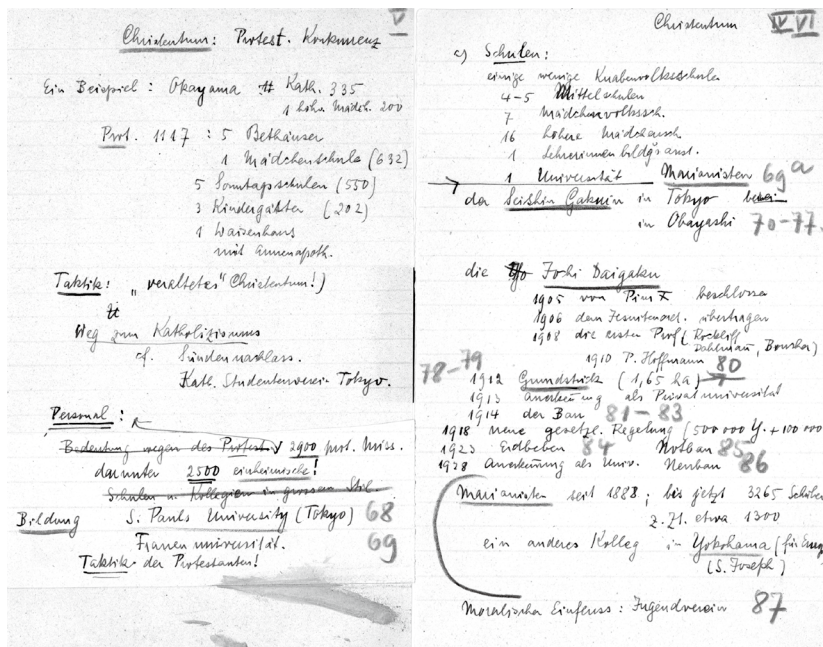 V
Christentum: Protest. Konkurrenz
Ein Beispiel: Okayama Kath. 335
1 höh. Mädch. 200
Prot. 1117 : 5 Bethäuser
1 Mädchenschule (632)
5 Sonntagsschulen (550)
3 Kindergärten (202)
1 Waisenhaus
mit Armenapoth.
Taktik: "veraltetes" Christentum!)
Weg zum Katholizismus
cf. Sündennachlass.
Kath. Studentenverein Tokyo.
Personal:
Bedeutung wegen des Protest. 2900 prot. Miss.
darunter 2500 einheimische!
Schulen u. Kollegien in grossem Stil
Bildung S. Pauls University (Tokyo) 68
Frauenuniversität. 69
Taktik der Protestanten!
Christentum IV VI
c) Schulen:
einige wenige Knabenvolksschulen
4-5 Mittelschulen
7 Mädchenvolkssch.
16 höhere Mädchensch.
1 Lehrerinnenbildgsanst.
1 Universität Marianisten 69a
der Seishin Gakuin in Tokyo
in Obayashi 70-77.
die Jochi Daigaku
1905 von Pius X beschlossen
1906 dem Jesuitenord. übertragen
1908 die ersten Prof. (Rockliff, Dahlmann, Boucher)
1910 P. Hoffmann 80
78-79
1912 Grundstück (1,65 ha)
1913 Anerkennung als Privatuniversität
1914 der Bau 81-83
1918 neue gesetzl. Regelung (500 000 Y. + 100 000
1923 Erdbeben 84 Notbau 85
1928 Anerkennung als Univ. Neubau 86
Marianisten seit 1888; bis jetzt 3265 Schüler
z. Zt. etwa 1300
ein anderes Kolleg in Yokohama (für
(S. Joseph)
Moralischer Einfluss: Jugendverein 87